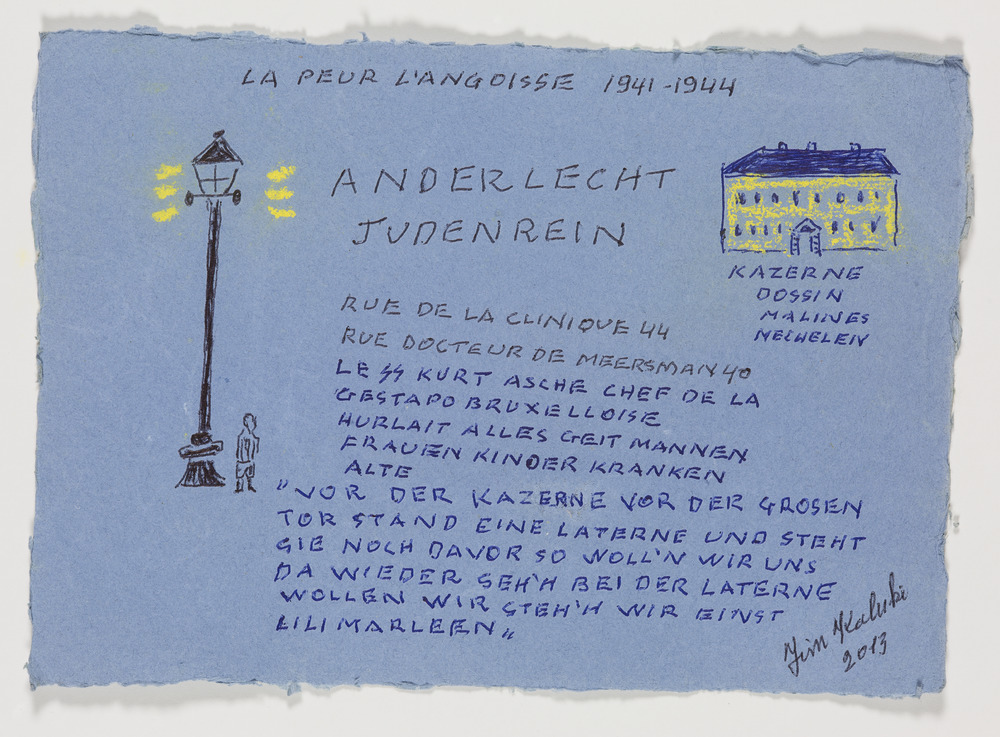 LA PEUR L'ANGOISSE 1941-1944
ANDERLECHT
JUDENREIN
KAZERNE
DOSSIN
MALINES
MECHELEN
RUE DE LA CLINIQUE 44
RUE DOCTEUR DE MEERSMAN 40
LE SS KURT ASCHE CHEF DE LA
GESTAPO BRUXELLOISE
HURLAIT ALLES GEIT MANNEN
FRAUEN KINDER KRANKEN
ALTE
"VOR DER KAZERNE VOR DER GROSEN
TOR STAND EINE LATERNE UND STEHT
SIE NOCH DAVOR SO WOLL'N WIR UNS
DA WIEDER SEH'H BEI DER LATERNE
WOLLEN WIR STEH'H WIR EINST
LILI MARLEEN"
Jim Kaluski
2013